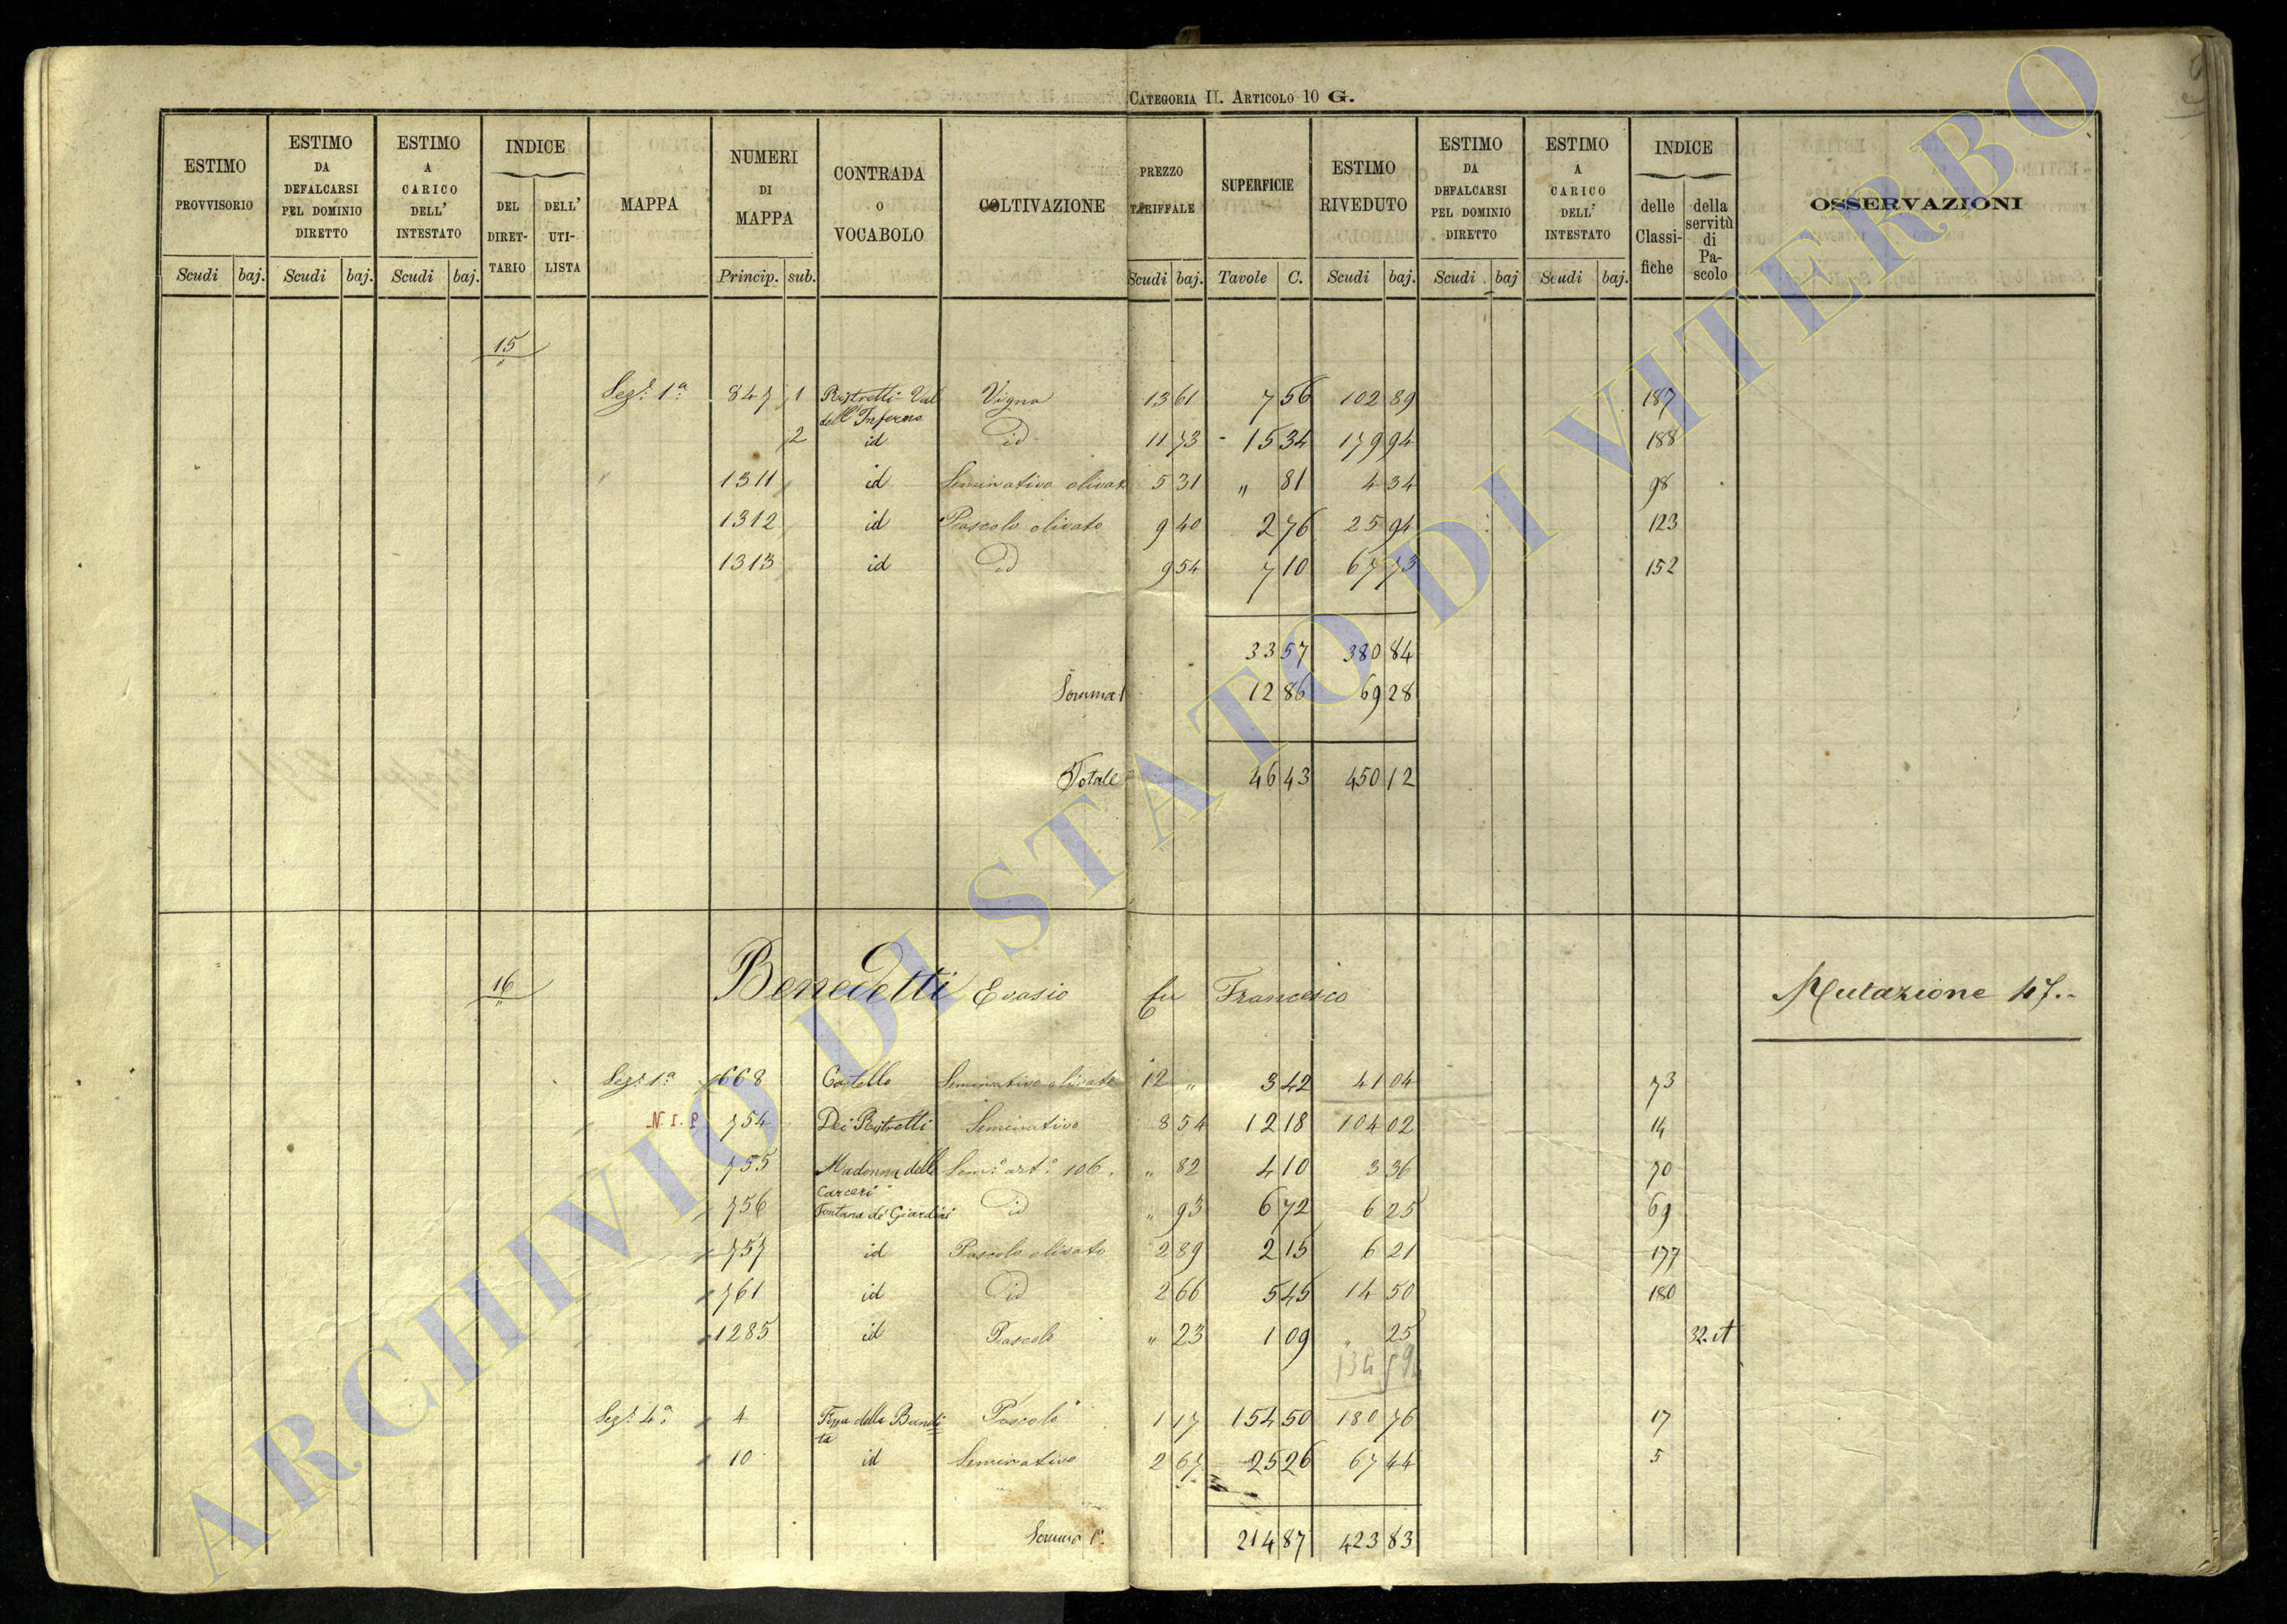 CATEGORIA II. ARTICOLO 10 G.
ESTIMO PROVVISORIO Scudi baj.
ESTIMO DA DEFALCARSI PEL DOMINIO DIRETTO Scudi baj.
ESTIMO A CARICO DELL' INTESTATO Scudi baj.
INDICE DEL DIRETTARIO DELL' UTILISTA
MAPPA
NUMERI DI MAPPA Princip. sub.
CONTRADA O VOCABOLO
COLTIVAZIONE
PREZZO TARIFFALE Scudi baj.
SUPERFICIE Tavole C.
ESTIMO RIVEDUTO Scudi baj.
ESTIMO DA DEFALCARSI PEL DOMINIO DIRETTO Scudi baj
ESTIMO A CARICO DELL' INTESTATO Scudi baj.
INDICE delle Classifiche della servitù di Pascolo
OSSERVAZIONI
15
"
Sez: 1ª 847 1 Ristretti Val dell'Inferno Vigna 13 61 7 56 102 89 187
2 id id 11 73 15 34 179 94 188
1311 id Seminativo olivat. 5 31 " 81 4 34 98
1312 id Pascolo olivato 9 40 2 76 25 94 123
1313 id id 9 54 7 10 67 73 152
33 57 380 84
Somma 12 86 69 28
Totale 46 43 450 12
16
"
Benedetti Evasio fu Francesco Mutazione 47.
Sez: 1ª 668 Castello Seminativo olivato 12 " 3 42 41 04 73
N. I. P 754 Dei Ristretti Seminativo 8 54 12 18 104 02 14
755 Madonna delle Carceri Sem: art: 106. " 82 4 10 3 36 70
756 Fontana de' Giardini id " 93 6 72 6 25 69
757 id Pascolo olivato 2 89 2 15 6 21 177
761 id id 2 66 5 45 14 50 180
1285 id Pascolo " 23 1 09 " 25 32.
Sez: 4ª 4 della Bandita Pascolo 1 17 154 50 180 76 17
10 id Seminativo 2 67 25 26 67 44 5
Somma 1ª. 214 87 423 83
ARCHIVIO DI STATO DI VITERBO